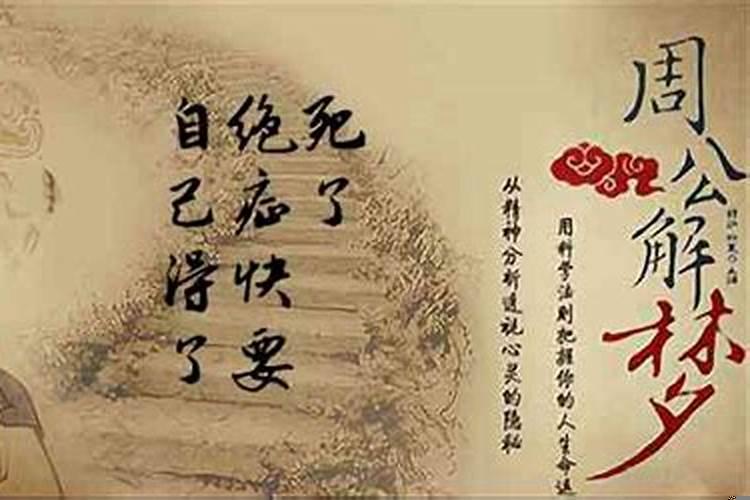 自己得了
绝症快要
死了
从精神分析透视心灵的隐秘
用科学法则把握你的人生命运
周公解梦